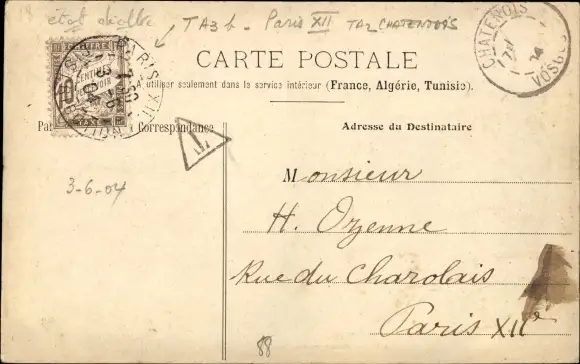 18 état
TA3 b - Paris XII TA2 CHATENOIS
CHATENOIS
VOSGES
CHIFFRE
10 CENTIMES
TAXE
PARIS XII
CARTE POSTALE
utiliser seulement dans le service intérieur (France, Algérie, Tunisie).
Correspondance
Adresse du Destinataire
T
3-6-04
Monsieur
H. Ozenne
Rue du Charolais
Paris XIIe
88